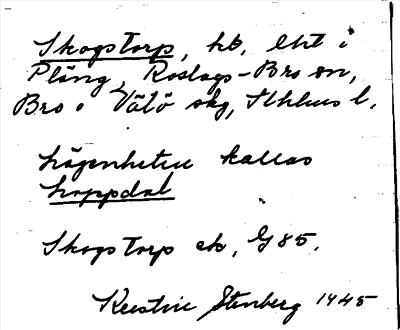 Skogstorp, hb, lht i
Pläng, Roslags-Bro sn,
Bro o Vätö skg, Sthlms l.
Lägenheten kallas
Loppdal
Skogstorp ek, G 85.
Kerstin Stenberg 1945